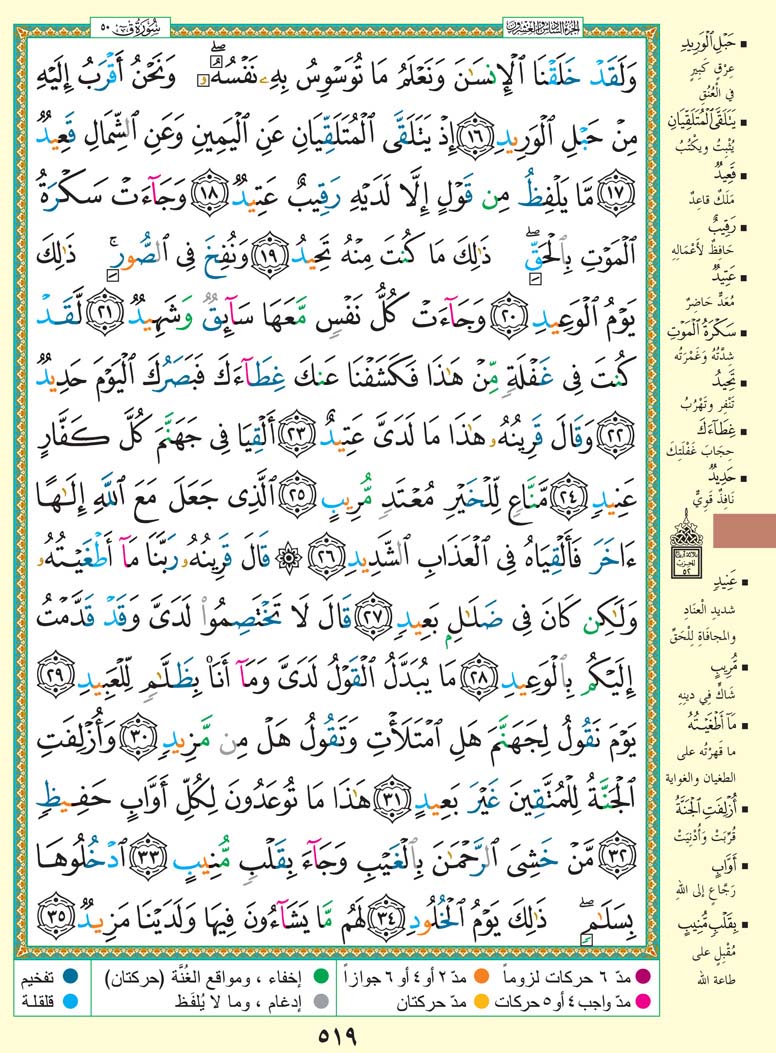 الجزء السادس والعشرون
سُورَةُ قٓ ٥٠
وَلَقَدْ خَلَقْنَا ٱلْإِنسَٰنَ وَنَعْلَمُ مَا تُوَسْوِسُ بِهِۦ نَفْسُهُۥۖ وَنَحْنُ أَقْرَبُ إِلَيْهِ
مِنْ حَبْلِ ٱلْوَرِيدِ ١٦ إِذْ يَتَلَقَّى ٱلْمُتَلَقِّيَانِ عَنِ ٱلْيَمِينِ وَعَنِ ٱلشِّمَالِ قَعِيدٌ
١٧ مَّا يَلْفِظُ مِن قَوْلٍ إِلَّا لَدَيْهِ رَقِيبٌ عَتِيدٌ ١٨ وَجَآءَتْ سَكْرَةُ
ٱلْمَوْتِ بِٱلْحَقِّۖ ذَٰلِكَ مَا كُنتَ مِنْهُ تَحِيدُ ١٩ وَنُفِخَ فِى ٱلصُّورِۚ ذَٰلِكَ
يَوْمُ ٱلْوَعِيدِ ٢٠ وَجَآءَتْ كُلُّ نَفْسٍ مَّعَهَا سَآئِقٌ وَشَهِيدٌ ٢١ لَّقَدْ
كُنتَ فِى غَفْلَةٍ مِّنْ هَٰذَا فَكَشَفْنَا عَنكَ غِطَآءَكَ فَبَصَرُكَ ٱلْيَوْمَ حَدِيدٌ
٢٢ وَقَالَ قَرِينُهُۥ هَٰذَا مَا لَدَىَّ عَتِيدٌ ٢٣ أَلْقِيَا فِى جَهَنَّمَ كُلَّ كَفَّارٍ
عَنِيدٍ ٢٤ مَّنَّاعٍ لِّلْخَيْرِ مُعْتَدٍ مُّرِيبٍ ٢٥ ٱلَّذِى جَعَلَ مَعَ ٱللَّهِ إِلَٰهًا
ءَاخَرَ فَأَلْقِيَاهُ فِى ٱلْعَذَابِ ٱلشَّدِيدِ ٢٦ ۞ قَالَ قَرِينُهُۥ رَبَّنَا مَآ أَطْغَيْتُهُۥ
وَلَٰكِن كَانَ فِى ضَلَٰلٍۭ بَعِيدٍ ٢٧ قَالَ لَا تَخْتَصِمُوا۟ لَدَىَّ وَقَدْ قَدَّمْتُ
إِلَيْكُم بِٱلْوَعِيدِ ٢٨ مَا يُبَدَّلُ ٱلْقَوْلُ لَدَىَّ وَمَآ أَنَا۠ بِظَلَّٰمٍ لِّلْعَبِيدِ ٢٩
يَوْمَ نَقُولُ لِجَهَنَّمَ هَلِ ٱمْتَلَأْتِ وَتَقُولُ هَلْ مِن مَّزِيدٍ ٣٠ وَأُزْلِفَتِ
ٱلْجَنَّةُ لِلْمُتَّقِينَ غَيْرَ بَعِيدٍ ٣١ هَٰذَا مَا تُوعَدُونَ لِكُلِّ أَوَّابٍ حَفِيظٍ
٣٢ مَّنْ خَشِىَ ٱلرَّحْمَٰنَ بِٱلْغَيْبِ وَجَآءَ بِقَلْبٍ مُّنِيبٍ ٣٣ ٱدْخُلُوهَا
بِسَلَٰمٍۖ ذَٰلِكَ يَوْمُ ٱلْخُلُودِ ٣٤ لَهُم مَّا يَشَآءُونَ فِيهَا وَلَدَيْنَا مَزِيدٌ ٣٥
▪ حَبْلِ ٱلْوَرِيدِ
عِرْقٍ كَبِيرٍ
فِي الْعُنُقِ
▪ يَتَلَقَّى ٱلْمُتَلَقِّيَانِ
يُثْبِتُ ويَكْتُبُ
▪ قَعِيدٌ
مَلَكٌ قاعِدٌ
▪ رَقِيبٌ
حَافِظٌ لأَعْمَالِهِ
▪ عَتِيدٌ
مُعَدٌّ حَاضِرٌ
▪ سَكْرَةُ ٱلْمَوْتِ
شِدَّتُهُ وَغَمْرَتُه
▪ تَحِيدُ
تَنْفِر وتَهْرُبُ
▪ غِطَآءَكَ
حِجَابَ غَفْلَتِكَ
▪ حَدِيدٌ
نَافِذٌ قَوِيٌّ
ثلاثة أرباع
الحزب
٥٢
▪ عَنِيدٍ
شديد الْعِنَادِ
والمجافَاةِ لِلْحَقِّ
▪ مُّرِيبٍ
شَاكٍّ فِي دِينِهِ
▪ مَآ أَطْغَيْتُهُ
ما قهرْتُه على
الطغيان والغواية
▪ أُزْلِفَتِ ٱلْجَنَّةُ
قُرِّبَتْ وَأُدْنِيَتْ
▪ أَوَّابٍ
رَجَّاعٍ إلى اللهِ
▪ بِقَلْبٍ مُّنِيبٍ
مُقْبِلٍ على
طاعة الله
مدّ ٦ حركات لزوماً مدّ ٢ أو ٤ أو ٦ جوازاً إخفاء ، ومواقع الغُنَّة (حركتان) تفخيم
مدّ واجب ٤ أو ٥ حركات مدّ حركتان إدغام ، وما لا يُلفَظ قلقلة
٥١٩